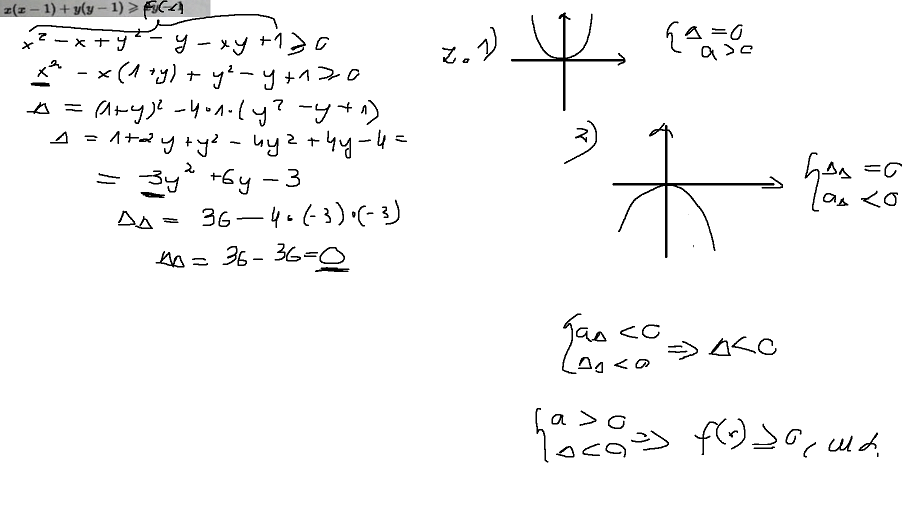 x(x − 1) + y(y − 1) ⩾
x² - x + y² - y - xy + 1 ≥ 0
x² - x(1+y) + y² - y + 1 ≥ 0
Δ = (1+y)² - 4·1·(y² - y + 1)
Δ = 1 + 2y + y² - 4y² + 4y - 4 =
= -3y² + 6y - 3
ΔΔ = 36 - 4·(-3)·(-3)
ΔΔ = 36 - 36 = 0
z.1)
{ Δ = 0
a > 0
2)
{ ΔΔ = 0
aΔ < 0
{ aΔ < 0
ΔΔ < 0 => Δ < 0
{ a > 0
Δ < 0 => f(x) ≥ 0,